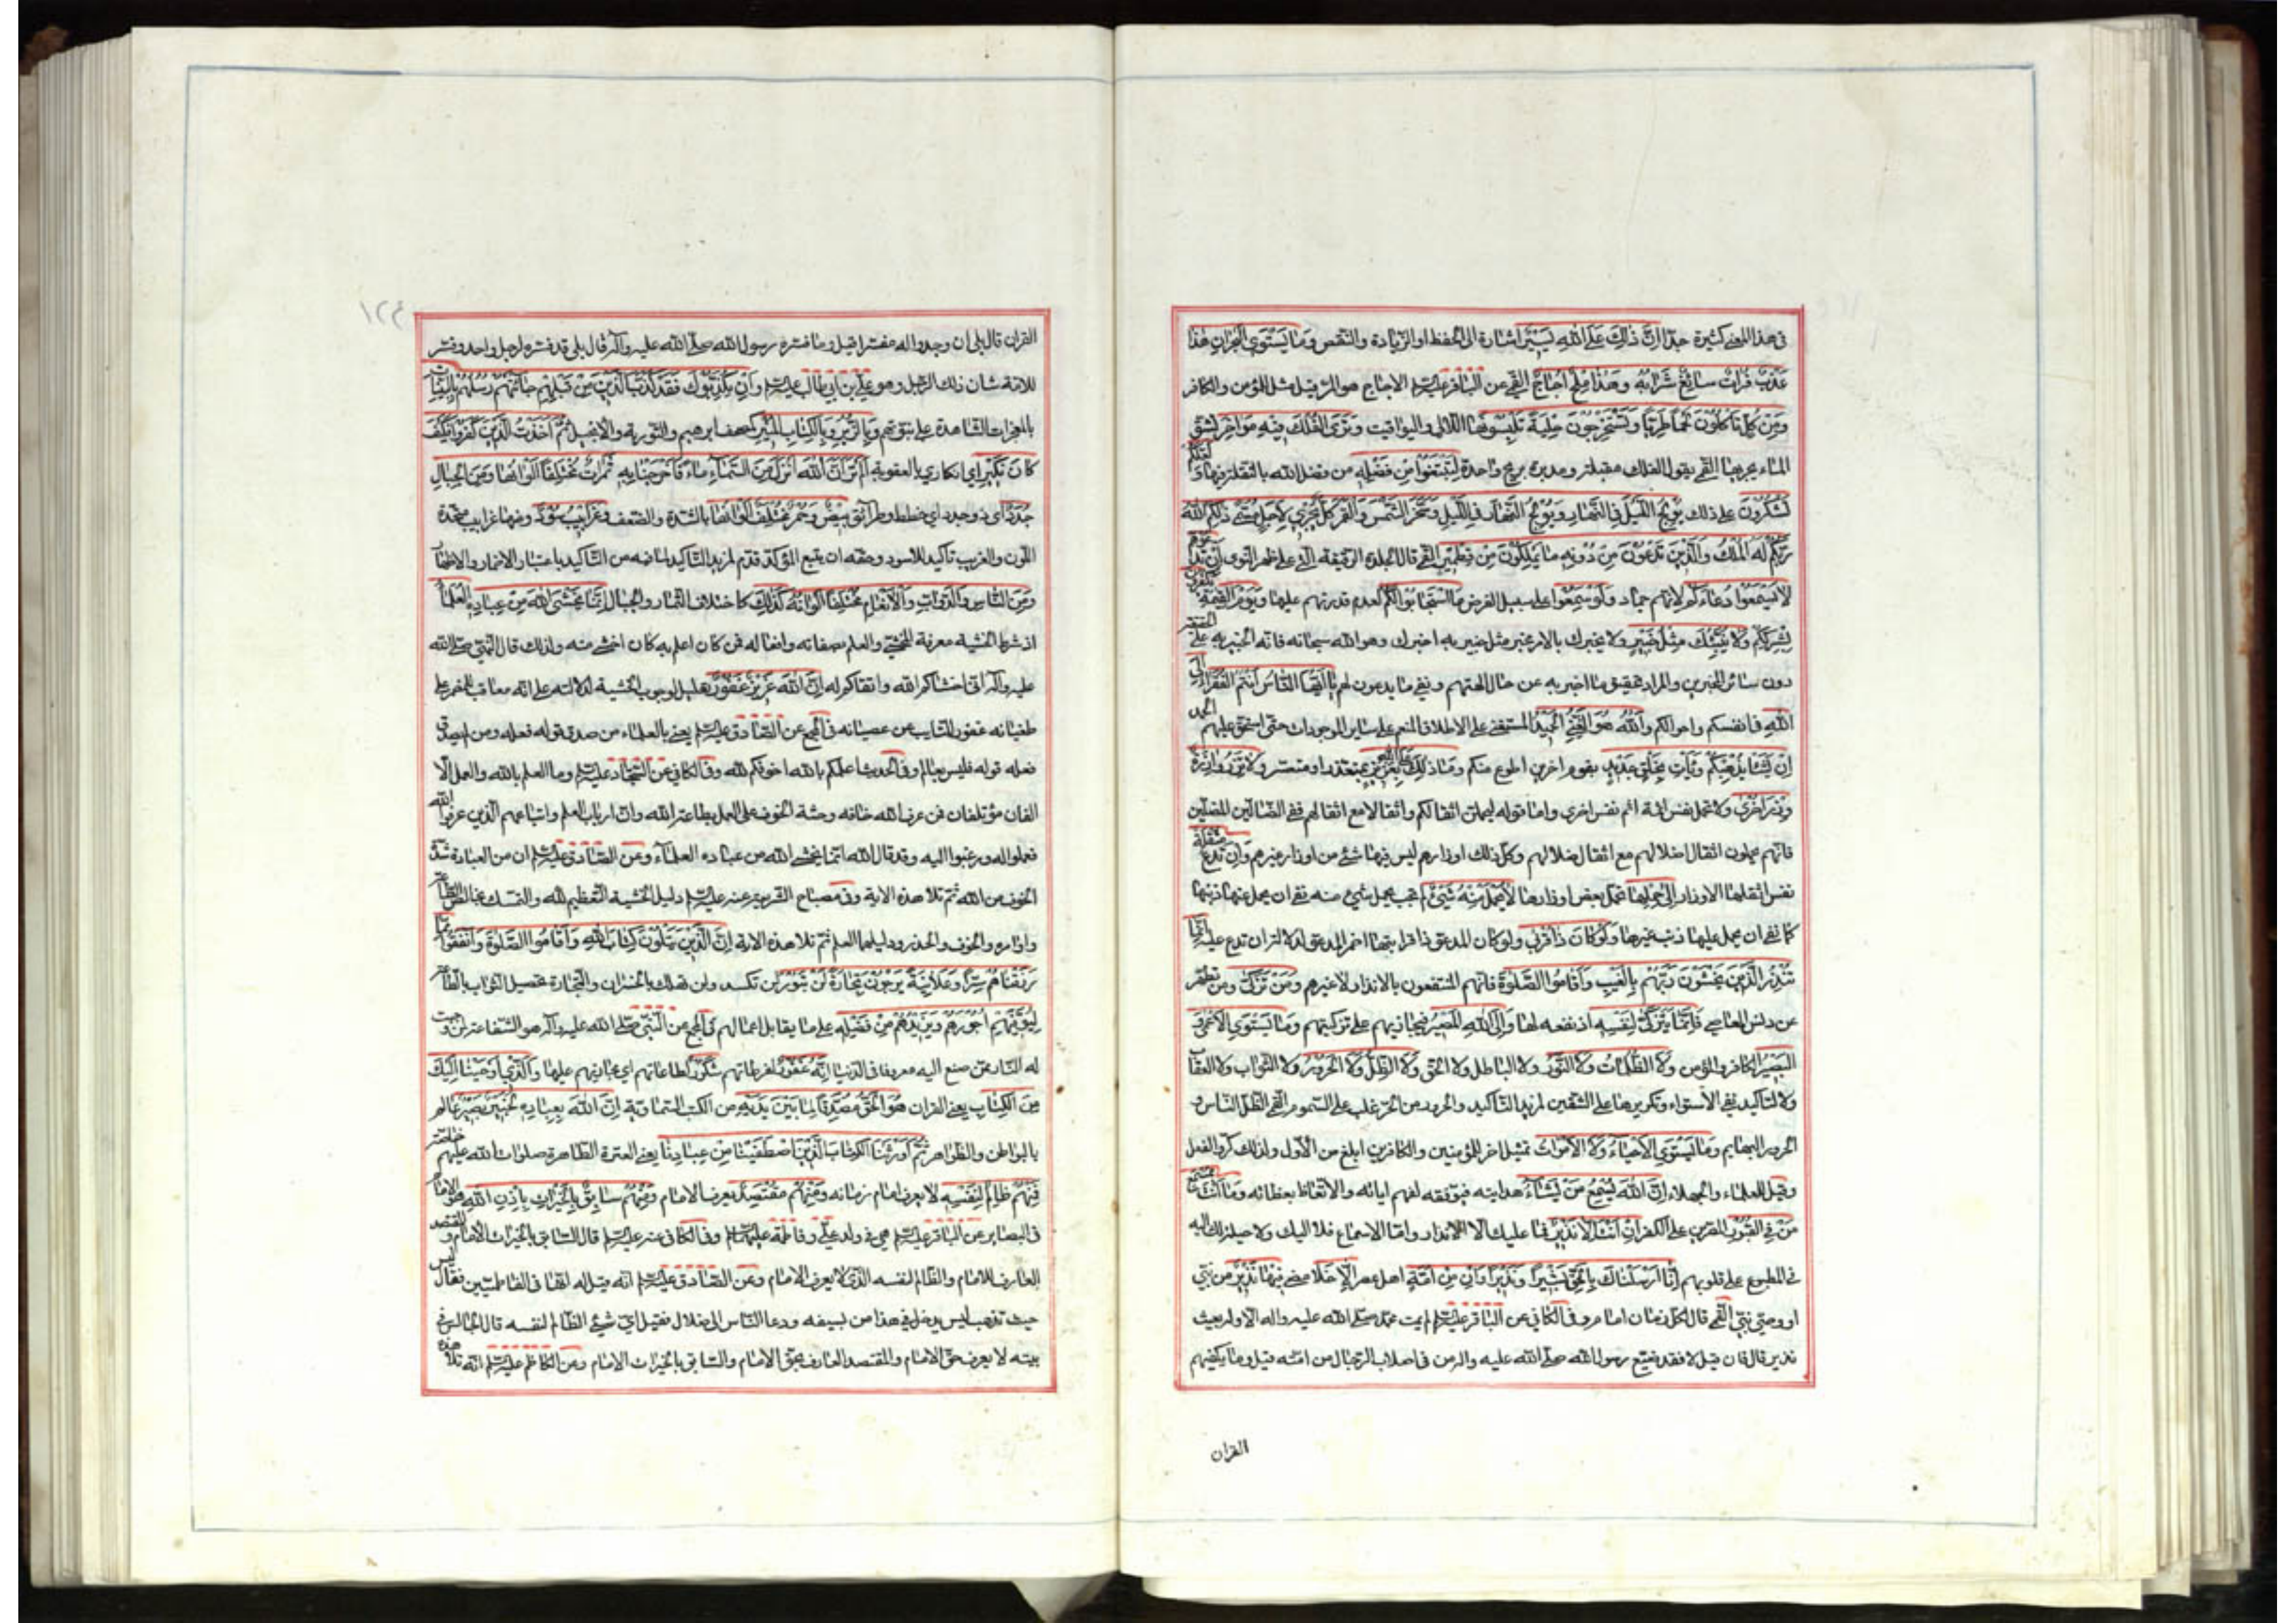 في هذا المعنى كثيرة جدّا إِنَّ ذٰلِكَ عَلَى اللهِ يَسِيرٌ اشارة الى الحفظ او الزيادة والنقص وَمَا يَسْتَوِي الْبَحْرَانِ هٰذَا
عَذْبٌ فُرَاتٌ سَائِغٌ شَرَابُهُ وَهٰذَا مِلْحٌ اُجَاجٌ القمي عن الباقر عليه السلم الاجاج هو المرّ قيل مثل للمؤمن والكافر
وَمِنْ كُلٍّ تَأْكُلُونَ لَحْمًا طَرِيًّا وَتَسْتَخْرِجُونَ حِلْيَةً تَلْبَسُونَهَا اللآلي واليواقيت وَتَرَى الْفُلْكَ فِيهِ مَوَاخِرَ تشق
الماء بجريها القمي يقول الفلك مقبلة ومدبرة بريح واحدة لِتَبْتَغُوا مِنْ فَضْلِهِ من فضل الله بالنقلة فيها وَلَعَلَّكُمْ
تَشْكُرُونَ على ذلك يُولِجُ اللَّيْلَ فِي النَّهَارِ وَيُولِجُ النَّهَارَ فِي اللَّيْلِ وَسَخَّرَ الشَّمْسَ وَالْقَمَرَ كُلٌّ يَجْرِي لِاَجَلٍ مُسَمًّى ذٰلِكُمُ اللهُ
رَبُّكُمْ لَهُ الْمُلْكُ وَالَّذِينَ تَدْعُونَ مِنْ دُونِهِ مَا يَمْلِكُونَ مِنْ قِطْمِيرٍ القمي قال الجلدة الرقيقة التي على ظهر النوى اِنْ تَدْعُوهُمْ
لَا يَسْمَعُوا دُعَاءَكُمْ لانهم جماد وَلَوْ سَمِعُوا على سبيل الفرض مَا اسْتَجَابُوا لَكُمْ لعدم قدرتهم عليها وَيَوْمَ الْقِيٰمَةِ يَكْفُرُونَ
بِشِرْكِكُمْ وَلَا يُنَبِّئُكَ مِثْلُ خَبِيرٍ ولا يخبرك بالامر مخبر مثل خبير به اخبرك وهو الله سبحانه فانه الخبير به على الحقيقة
دون سائر المخبرين والمراد تحقيق ما اخبر به عن حال الهتهم ونفي ما يدعون لهم يَا اَيُّهَا النَّاسُ اَنْتُمُ الْفُقَرَاءُ اِلَى
اللهِ في انفسكم واحوالكم وَاللهُ هُوَ الْغَنِيُّ الْحَمِيدُ المستغني على الاطلاق المنعم على سائر الموجودات حتى استحق عليهم الحمد
اِنْ يَشَأْ يُذْهِبْكُمْ وَيَأْتِ بِخَلْقٍ جَدِيدٍ بقوم اخرين اطوع منكم وَمَا ذٰلِكَ عَلَى اللهِ بِعَزِيزٍ بمتعذر او متعسر وَلَا تَزِرُ وَازِرَةٌ
وِزْرَ اُخْرَى ولا تحمل نفس اثمة اثم نفس اخرى واما قوله ليحملن اثقالكم واثقالا مع اثقالهم ففي الضالين المضلين
فانهم يحملون اثقال اضلالهم مع اثقال ضلالهم وكل ذلك اوزارهم ليس فيها شئ من اوزار غيرهم وَاِنْ تَدْعُ مُثْقَلَةٌ
نفس اثقلها الاوزار اِلَى حِمْلِهَا تحمل بعض اوزارها لَا يُحْمَلْ مِنْهُ شَيْءٌ لم تجب بحمل شئ منه نفى ان يحمل عنها ذنبها
كما نفى ان يحمل عليها ذنب غيرها وَلَوْ كَانَ ذَا قُرْبَى ولو كان المدعو ذا قرابتها اضمر المدعو لدلالة ان تدع عليه اِنَّمَا
تُنْذِرُ الَّذِينَ يَخْشَوْنَ رَبَّهُمْ بِالْغَيْبِ وَاَقَامُوا الصَّلٰوةَ فانهم المنتفعون بالانذار لا غيرهم وَمَنْ تَزَكَّى ومن تطهر
عن دنس المعاصي فَاِنَّمَا يَتَزَكَّى لِنَفْسِهِ اذ نفعه لها وَاِلَى اللهِ الْمَصِيرُ فيجازيهم على تزكيتهم وَمَا يَسْتَوِي الْاَعْمَى وَ
الْبَصِيرُ الكافر والمؤمن وَلَا الظُّلُمَاتُ وَلَا النُّورُ ولا الباطل ولا الحق وَلَا الظِّلُّ وَلَا الْحَرُورُ ولا الثواب ولا العقاب
ولا لتأكيد نفي الاستواء وتكريرها على الشقين لمزيد التأكيد والحرور من الحر غلب على السموم القمي الظل الناس و
الحرور البهايم وَمَا يَسْتَوِي الْاَحْيَاءُ وَلَا الْاَمْوَاتُ تمثيل اخر للمؤمنين والكافرين ابلغ من الاول ولذلك كرر الفعل
وقيل للعلماء والجهلاء اِنَّ اللهَ يُسْمِعُ مَنْ يَشَاءُ هدايته فيوفقه لفهم اياته والاتعاظ بعظاته وَمَا اَنْتَ بِمُسْمِعٍ
مَنْ فِي الْقُبُورِ المصرين على الكفر اِنْ اَنْتَ اِلَّا نَذِيرٌ فما عليك الا الانذار واما الاسماع فلا اليك ولا حيلة لك اليه
في المطبوع على قلوبهم اِنَّا اَرْسَلْنَاكَ بِالْحَقِّ بَشِيرًا وَنَذِيرًا وَاِنْ مِنْ اُمَّةٍ اهل عصر اِلَّا خَلَا مضى فِيهَا نَذِيرٌ من نبي
او وصي نبي القمي قال لكل زمان امام وفي الكافي عن الباقر عليه السلم لم يمت محمد صلى الله عليه واله الا وله بعيث
نذير قال فان قيل لا فقد ضيع رسول الله صلى الله عليه واله من في اصلاب الرجال من امته قيل وما يكفيهم
القران
١٢٤
القران قال بلى ان وجدوا له مفسرا قيل وما فسره رسول الله صلى الله عليه وآله قال بلى قد فسره لرجل واحد وفسر
للامة شان ذلك الرجل وهو علي بن ابي طالب عليه السلم وَاِنْ يُكَذِّبُوكَ فَقَدْ كَذَّبَ الَّذِينَ مِنْ قَبْلِهِمْ جَاءَتْهُمْ رُسُلُهُمْ بِالْبَيِّنَاتِ
بالمعجزات الشاهدة على نبوتهم وَبِالزُّبُرِ وَبِالْكِتَابِ الْمُنِيرِ كصحف ابرهيم والتورية والانجيل ثُمَّ اَخَذْتُ الَّذِينَ كَفَرُوا فَكَيْفَ
كَانَ نَكِيرِ اي انكاري بالعقوبة اَلَمْ تَرَ اَنَّ اللهَ اَنْزَلَ مِنَ السَّمَاءِ مَاءً فَاَخْرَجْنَا بِهِ ثَمَرَاتٍ مُخْتَلِفًا اَلْوَانُهَا وَمِنَ الْجِبَالِ
جُدَدٌ اي ذو جدد اي خطط وطرائق بِيضٌ وَحُمْرٌ مُخْتَلِفٌ اَلْوَانُهَا بالشدة والضعف وَغَرَابِيبُ سُودٌ ومنها غرابيب متحدة
اللون والغربيب تأكيد للاسود وحقه ان يتبع المؤكد قدم لمزيد التأكيد لما فيه من التأكيد باعتبار الاضمار والاظهار
وَمِنَ النَّاسِ وَالدَّوَابِّ وَالْاَنْعَامِ مُخْتَلِفٌ اَلْوَانُهُ كَذٰلِكَ كاختلاف الثمار والجبال اِنَّمَا يَخْشَى اللهَ مِنْ عِبَادِهِ الْعُلَمَاءُ
اذ شرط الخشية معرفة المخشي والعلم بصفاته وافعاله فمن كان اعلم به كان اخشى منه ولذلك قال النبي صلى الله
عليه وآله اني اخشاكم لله واتقاكم له اِنَّ اللهَ عَزِيزٌ غَفُورٌ تعليل لوجوب الخشية لدلالته على انه معاقب للمصر على
طغيانه غفور للتايب عن عصيانه في المجمع عن الصادق عليه السلم يعني بالعلماء من صدق قوله فعله ومن لم يصدق
فعله قوله فليس بعالم وفي الحديث اعلمكم بالله اخوفكم لله وفي الكافي عن السجاد عليه السلم وما العلم بالله والعمل الا
الفان مؤتلفان فمن عرف الله خافه وحثه الخوف على العمل بطاعة الله وان ارباب العلم واتباعهم الذين عرفوا الله
فعملوا له ورغبوا اليه وقد قال الله انما يخشى الله من عباده العلماء وعن الصادق عليه السلم ان من العبادة شدة
الخوف من الله ثم تلا هذه الاية وفي مصباح الشريعة عنه عليه السلم دليل الخشية التعظيم لله والتمسك بخالص الطاعة
واوامره والخوف والحذر ودليلهما العلم ثم تلا هذه الاية اِنَّ الَّذِينَ يَتْلُونَ كِتَابَ اللهِ وَاَقَامُوا الصَّلٰوةَ وَاَنْفَقُوا مِمَّا
رَزَقْنَاهُمْ سِرًّا وَعَلَانِيَةً يَرْجُونَ تِجَارَةً لَنْ تَبُورَ لن تكسد ولن تهلك بالخسران والتجارة تحصيل الثواب بالطاعة
لِيُوَفِّيَهُمْ اُجُورَهُمْ وَيَزِيدَهُمْ مِنْ فَضْلِهِ على ما يقابل اعمالهم في المجمع عن النبي صلى الله عليه وآله هو الشفاعة لمن وجبت
له النار ممن صنع اليه معروفا في الدنيا اِنَّهُ غَفُورٌ لفرطاتهم شَكُورٌ لطاعاتهم اي مجازيهم عليها وَالَّذِي اَوْحَيْنَا اِلَيْكَ
مِنَ الْكِتَابِ يعني القران هُوَ الْحَقُّ مُصَدِّقًا لِمَا بَيْنَ يَدَيْهِ من الكتب السماوية اِنَّ اللهَ بِعِبَادِهِ لَخَبِيرٌ بَصِيرٌ عالم
بالبواطن والظواهر ثُمَّ اَوْرَثْنَا الْكِتَابَ الَّذِينَ اصْطَفَيْنَا مِنْ عِبَادِنَا يعني العترة الطاهرة صلوات الله عليهم خاصة
فَمِنْهُمْ ظَالِمٌ لِنَفْسِهِ لا يعرف امام زمانه وَمِنْهُمْ مُقْتَصِدٌ يعرف الامام وَمِنْهُمْ سَابِقٌ بِالْخَيْرَاتِ بِاِذْنِ اللهِ هو الامام
في البصاير عن الباقر عليه السلم هي في ولد علي وفاطمة عليهما السلم وفي الكافي عنه عليه السلم قال السابق بالخيرات الامام والمقتصد
العارف للامام والظالم لنفسه الذي لا يعرف الامام وعن الصادق عليه السلم انه قيل له انها في الفاطميين فقال ليس
حيث تذهب ليس يدخل في هذا من بسيفه ودعا الناس الى ضلال فقيل اي شئ الظالم لنفسه قال الجالس في
بيته لا يعرف حق الامام والمقتصد العارف بحق الامام والسابق بالخيرات الامام وعن الكاظم عليه السلم انه تلا هذه